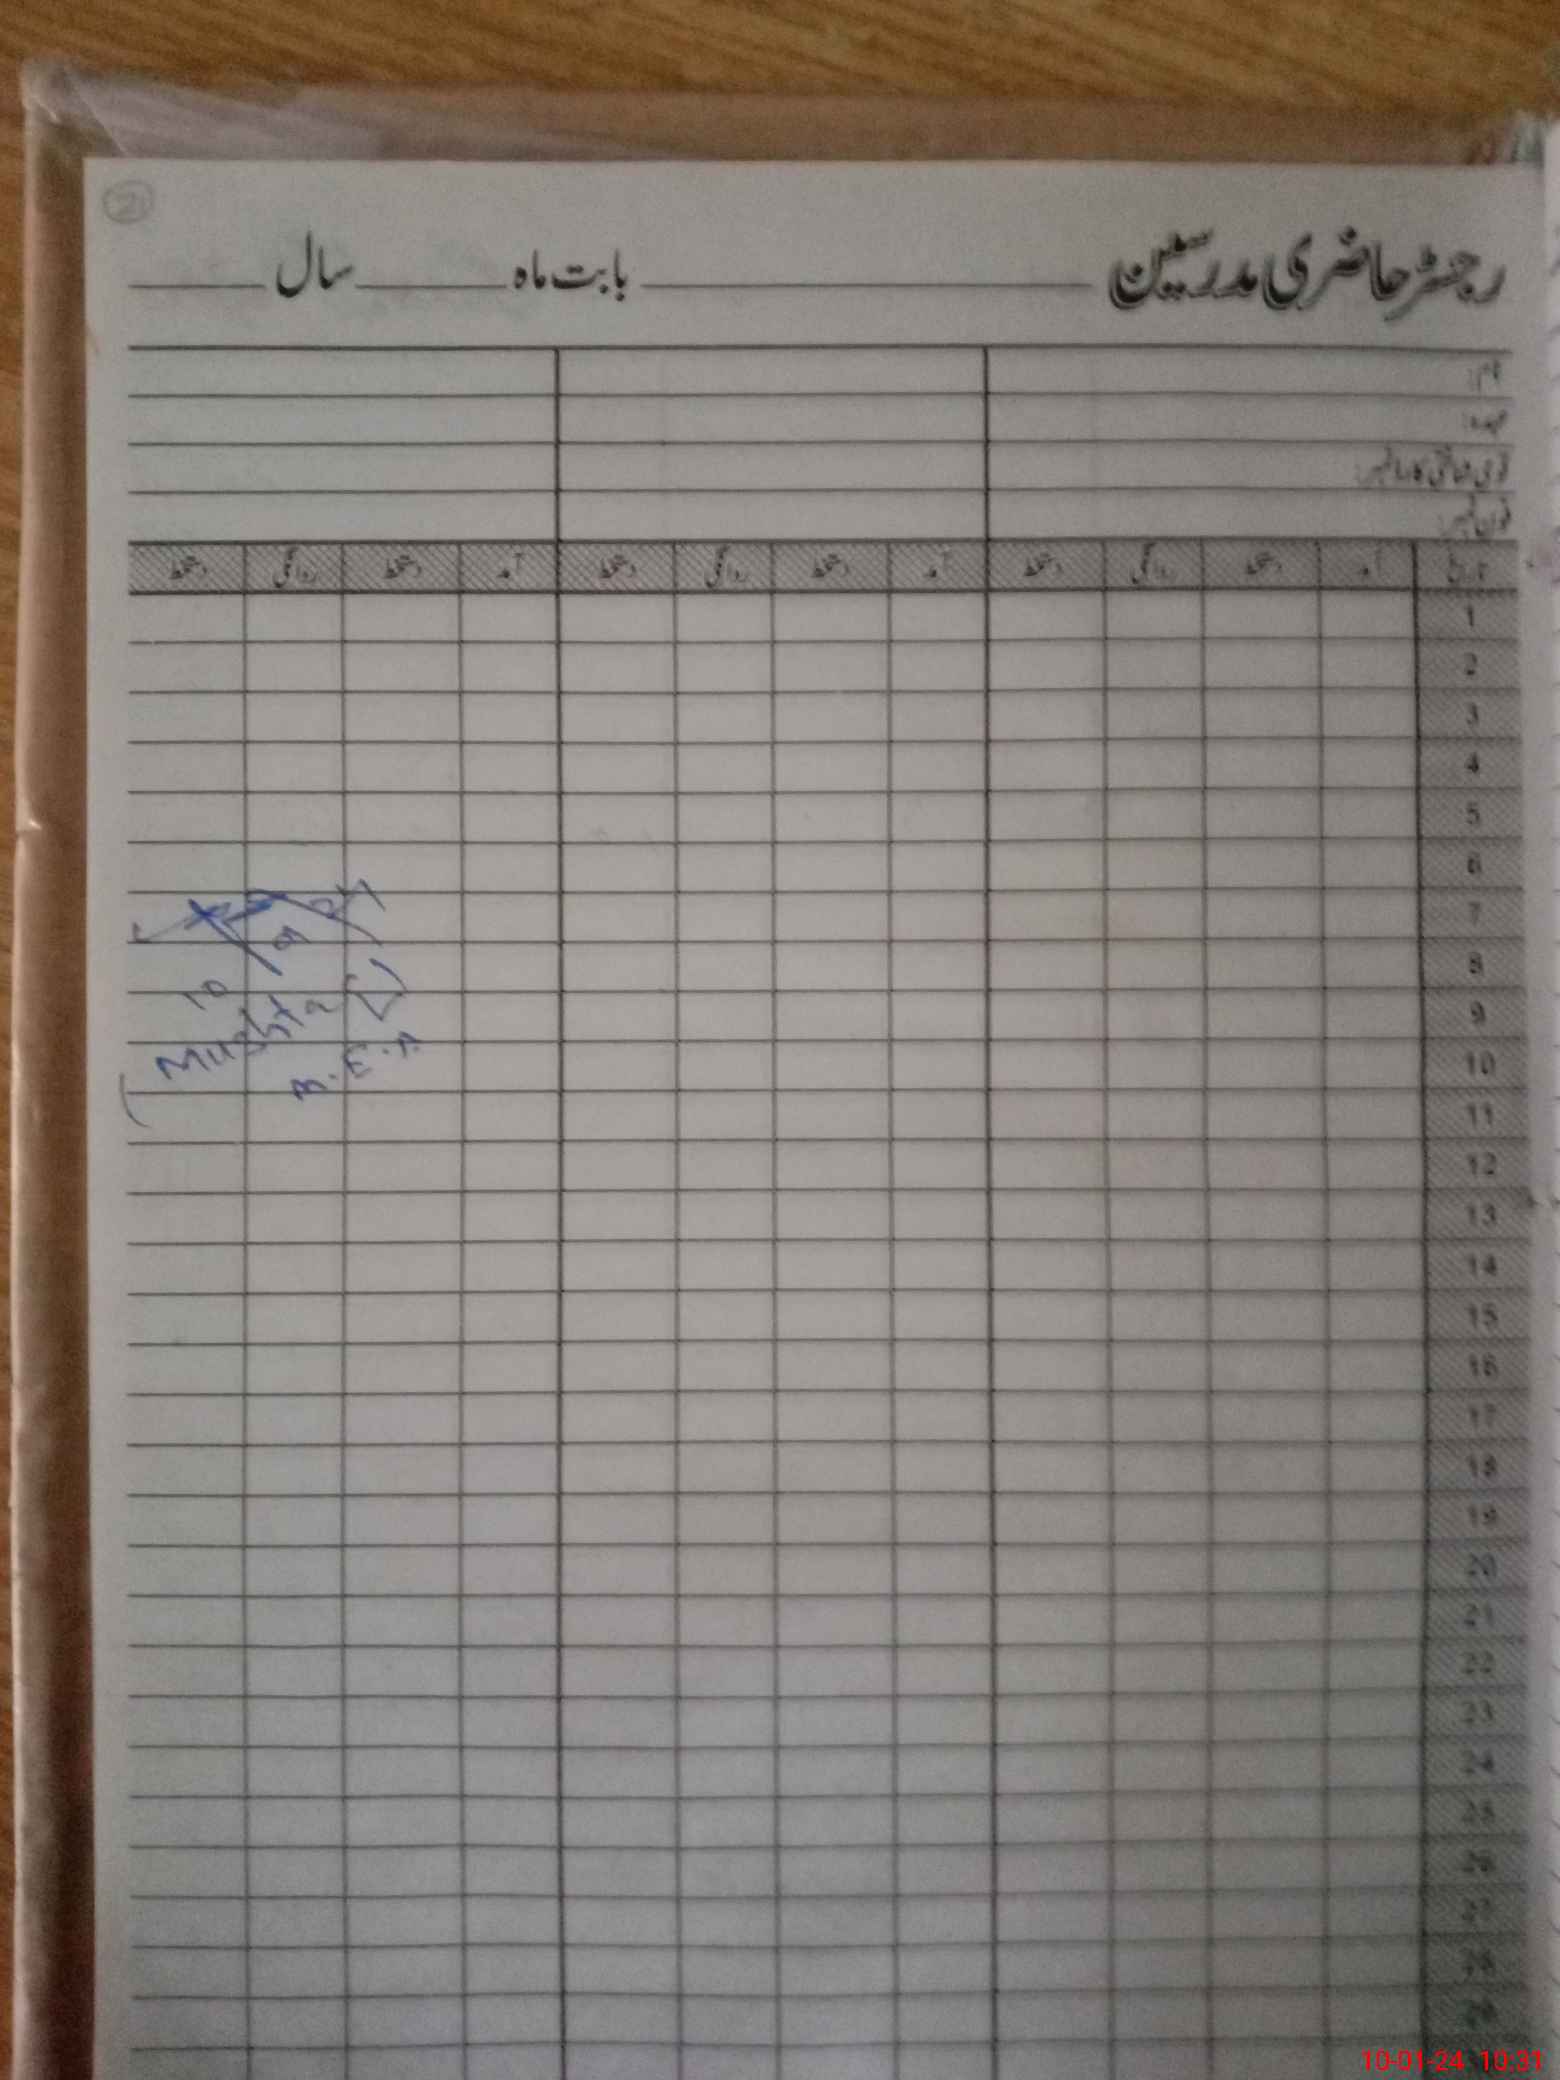 21
رجسٹر حاضری مدرسین ________ بابت ماہ ________ سال ________
نام:
عہدہ:
قومی شناختی کارڈ نمبر:
فون نمبر:
تاریخ آمد دستخط روانگی دستخط آمد دستخط روانگی دستخط آمد دستخط روانگی دستخط
1
2
3
4
5
6
7
8
9
10
11
12
13
14
15
16
17
18
19
20
21
22
23
24
25
26
27
28
29
10
Mushta
M.E.A
10-01-24 10:31